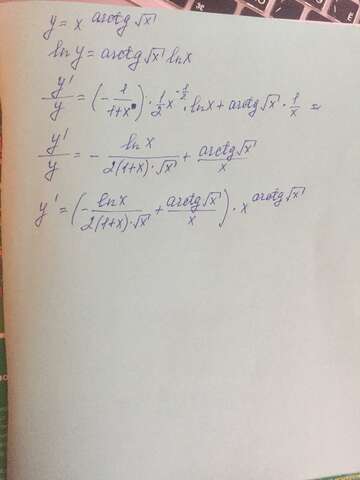 y = x^(arctg √x)
ln y = arctg √x ln x
y'/y = (-1/(1+x)) · 1/2 x^(-1/2) · ln x + arctg √x · 1/x =
y'/y = - ln x/(2(1+x)·√x) + arctg √x/x
y' = (- ln x/(2(1+x)·√x) + arctg √x/x) · x^(arctg √x)